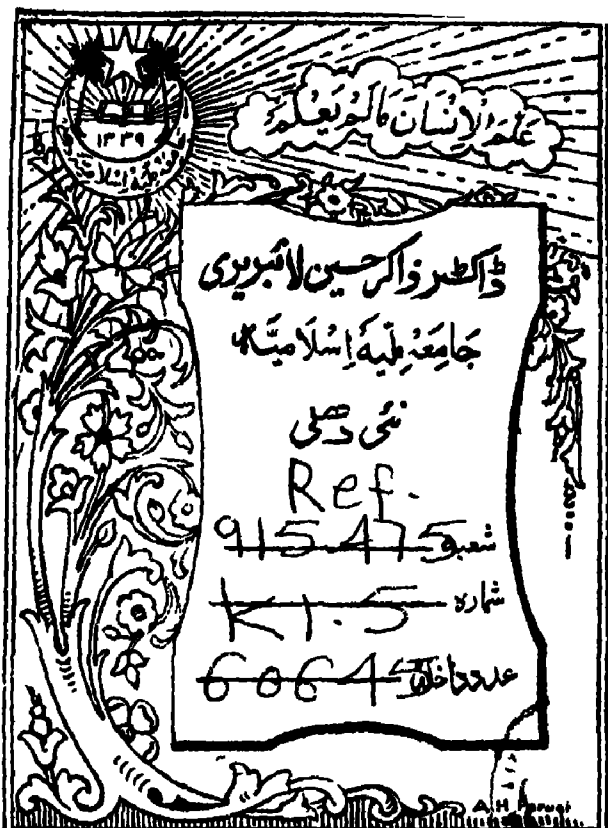 عَلَّمَ الْاِنْسَانَ مَا لَمْ يَعْلَمْ
۱۳۳۹
ڈاکٹر ذاکر حسین لائبریری
جَامِعَہ مِلّیہ اِسْلَامیَّہ
نئی دھلی
Ref.
شعبہ 915.475
شمارہ K1.5
عدد داخلہ 6064
A.H. Faruqi